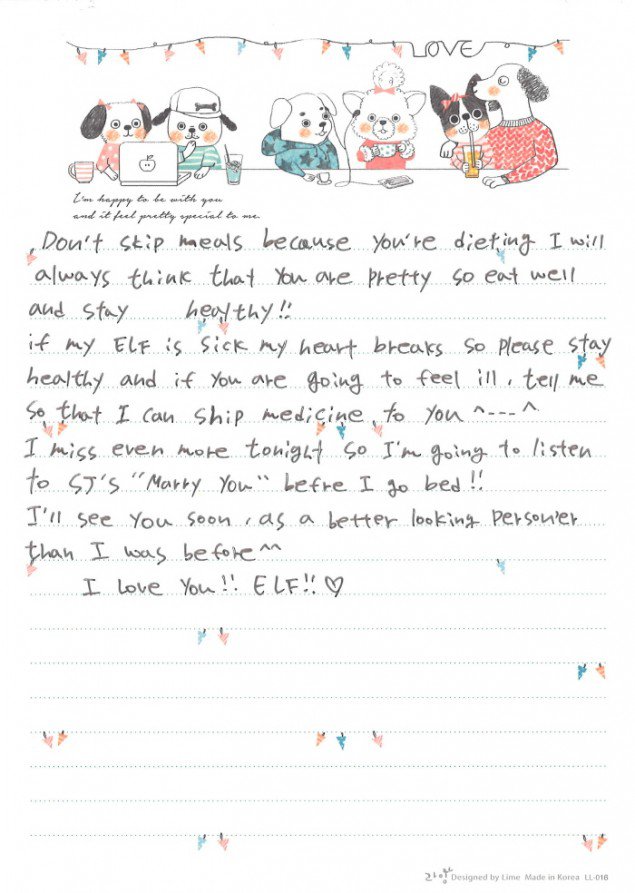 LOVE
I'm happy to be with you
and it feel pretty special to me.
, Don't skip meals because you're dieting I will
always think that you are pretty so eat well
and stay healthy!!
if my ELF is sick my heart breaks so please stay
healthy and if you are going to feel ill, tell me
so that I can ship medicine to you ^---^
I miss even more tonight so I'm going to listen
to SJ's "Marry You" befre I go bed!!
I'll see you soon, as a better looking person'er
than I was before^^
I Love You!! ELF!! ♡
라임 Designed by Lime Made in Korea LL-016